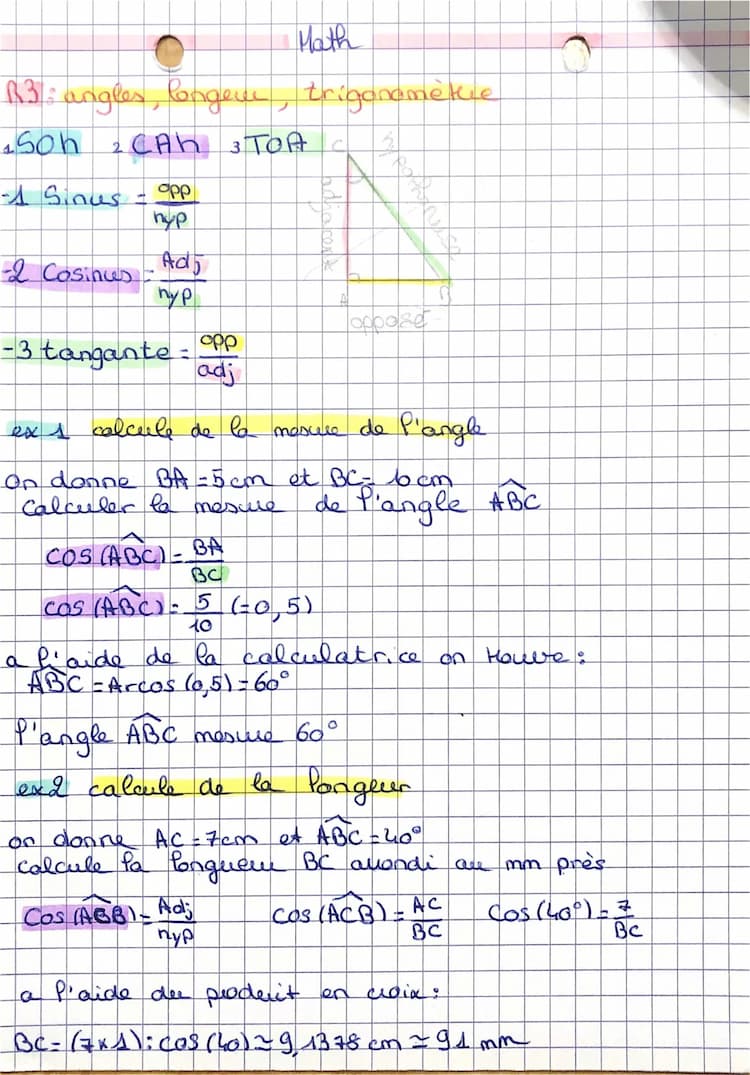 Math
R3: angles, longeur, trigonomètrie
1 SOh 2 CAh 3 TOA
-1 Sinus = opp / hyp
-2 Cosinus = Adj / hyp
-3 tangante = opp / adj
C
adjacent
hypothanuse
A
B
opposé
ex 1 calcule de la mesure de l'angle
on donne BA = 5 cm et BC = 10 cm
Calculer la mesure de l'angle ABC
cos (ABC) = BA / BC
cos (ABC) = 5 / 10 (=0,5)
a l'aide de la calculatrice on trouve :
ABC = Arcos (0,5) = 60°
l'angle ABC mesure 60°
ex2 calcule de la longeur
on donne AC = 7cm et ABC = 40°
calcule la longueur BC arrondi au mm près
Cos (ACB) = Adj / hyp cos (ACB) = AC / BC Cos (40°) = 7 / BC
a l'aide du produit en croix :
BC = (7 x 1) : cos (40) ≃ 9,1378 cm ≃ 91 mm